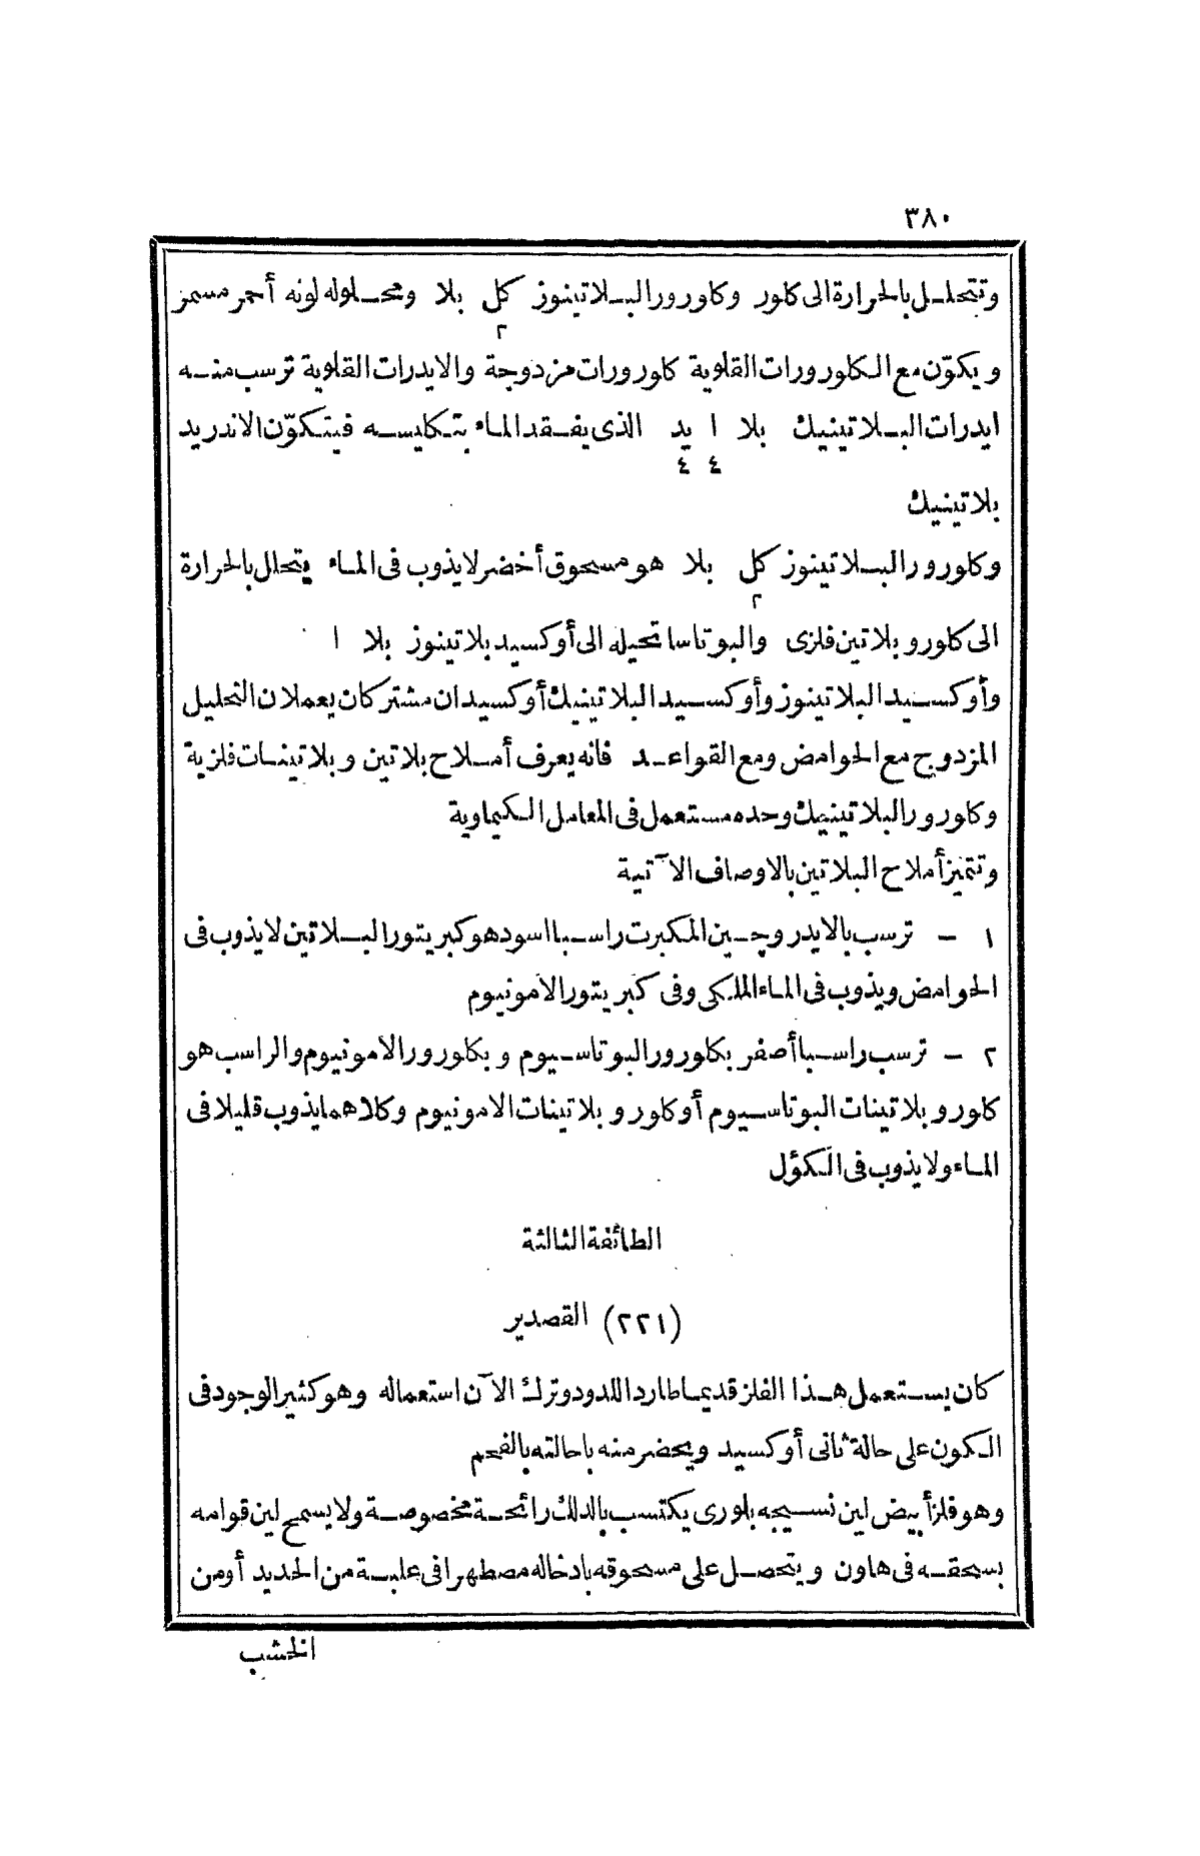 ٣٨٠
وتتحلل بالحرارة الى كلور وكلورور البلاتينوز كل بلا ومحلوله لونه أحمر مسمر
٢
ويكوّن مع الكلورورات القلوية كلورورات مزدوجة والايدرات القلوية ترسب منه
ايدرات البلاتينيك بلا ا يد الذى يفقد الماء بتكليسه فيتكوّن الاندريد
٤ ٤
بلاتينيك
وكلورور البلاتينوز كل بلا هو مسحوق أخضر لا يذوب فى الماء يتحلل بالحرارة
٢
الى كلور وبلاتين فلزى والبوتاسا تحيله الى أوكسيد بلاتينوز بلا ا
وأوكسيد البلاتينوز وأوكسيد البلاتينيك أوكسيدان مشتركان يعملان التحليل
المزدوج مع الحوامض ومع القواعد فانه يعرف أملاح بلاتين وبلاتينات فلزية
وكلورور البلاتينيك وحده مستعمل فى المعامل الكيماوية
وتتميز أملاح البلاتين بالاوصاف الآتية
١ – ترسب بالايدروچين المكبرت راسبا اسود هو كبريتور البلاتين لا يذوب فى
الحوامض ويذوب فى الماء الملكى وفى كبريتور الامونيوم
٢ – ترسب راسبا أصفر بكلورور البوتاسيوم وبكلورور الامونيوم والراسب هو
كلورو بلاتينات البوتاسيوم أو كلورو بلاتينات الامونيوم وكلاهما يذوب قليلا فى
الماء ولا يذوب فى الكؤل
الطائفة الثالثة
(٢٢١) القصدير
كان يستعمل هذا الفلز قديما طاردا للدود وترك الآن استعماله وهو كثير الوجود فى
الكون على حالة ثانى أوكسيد ويحضر منه باحالته بالفحم
وهو فلز أبيض لين نسيجه بلورى يكتسب بالدلك رائحة مخصوصة ولا يسمح لين قوامه
بسحقه فى هاون ويتحصل على مسحوقه بادخاله مصطهرا فى علبة من الحديد أو من
الخشب